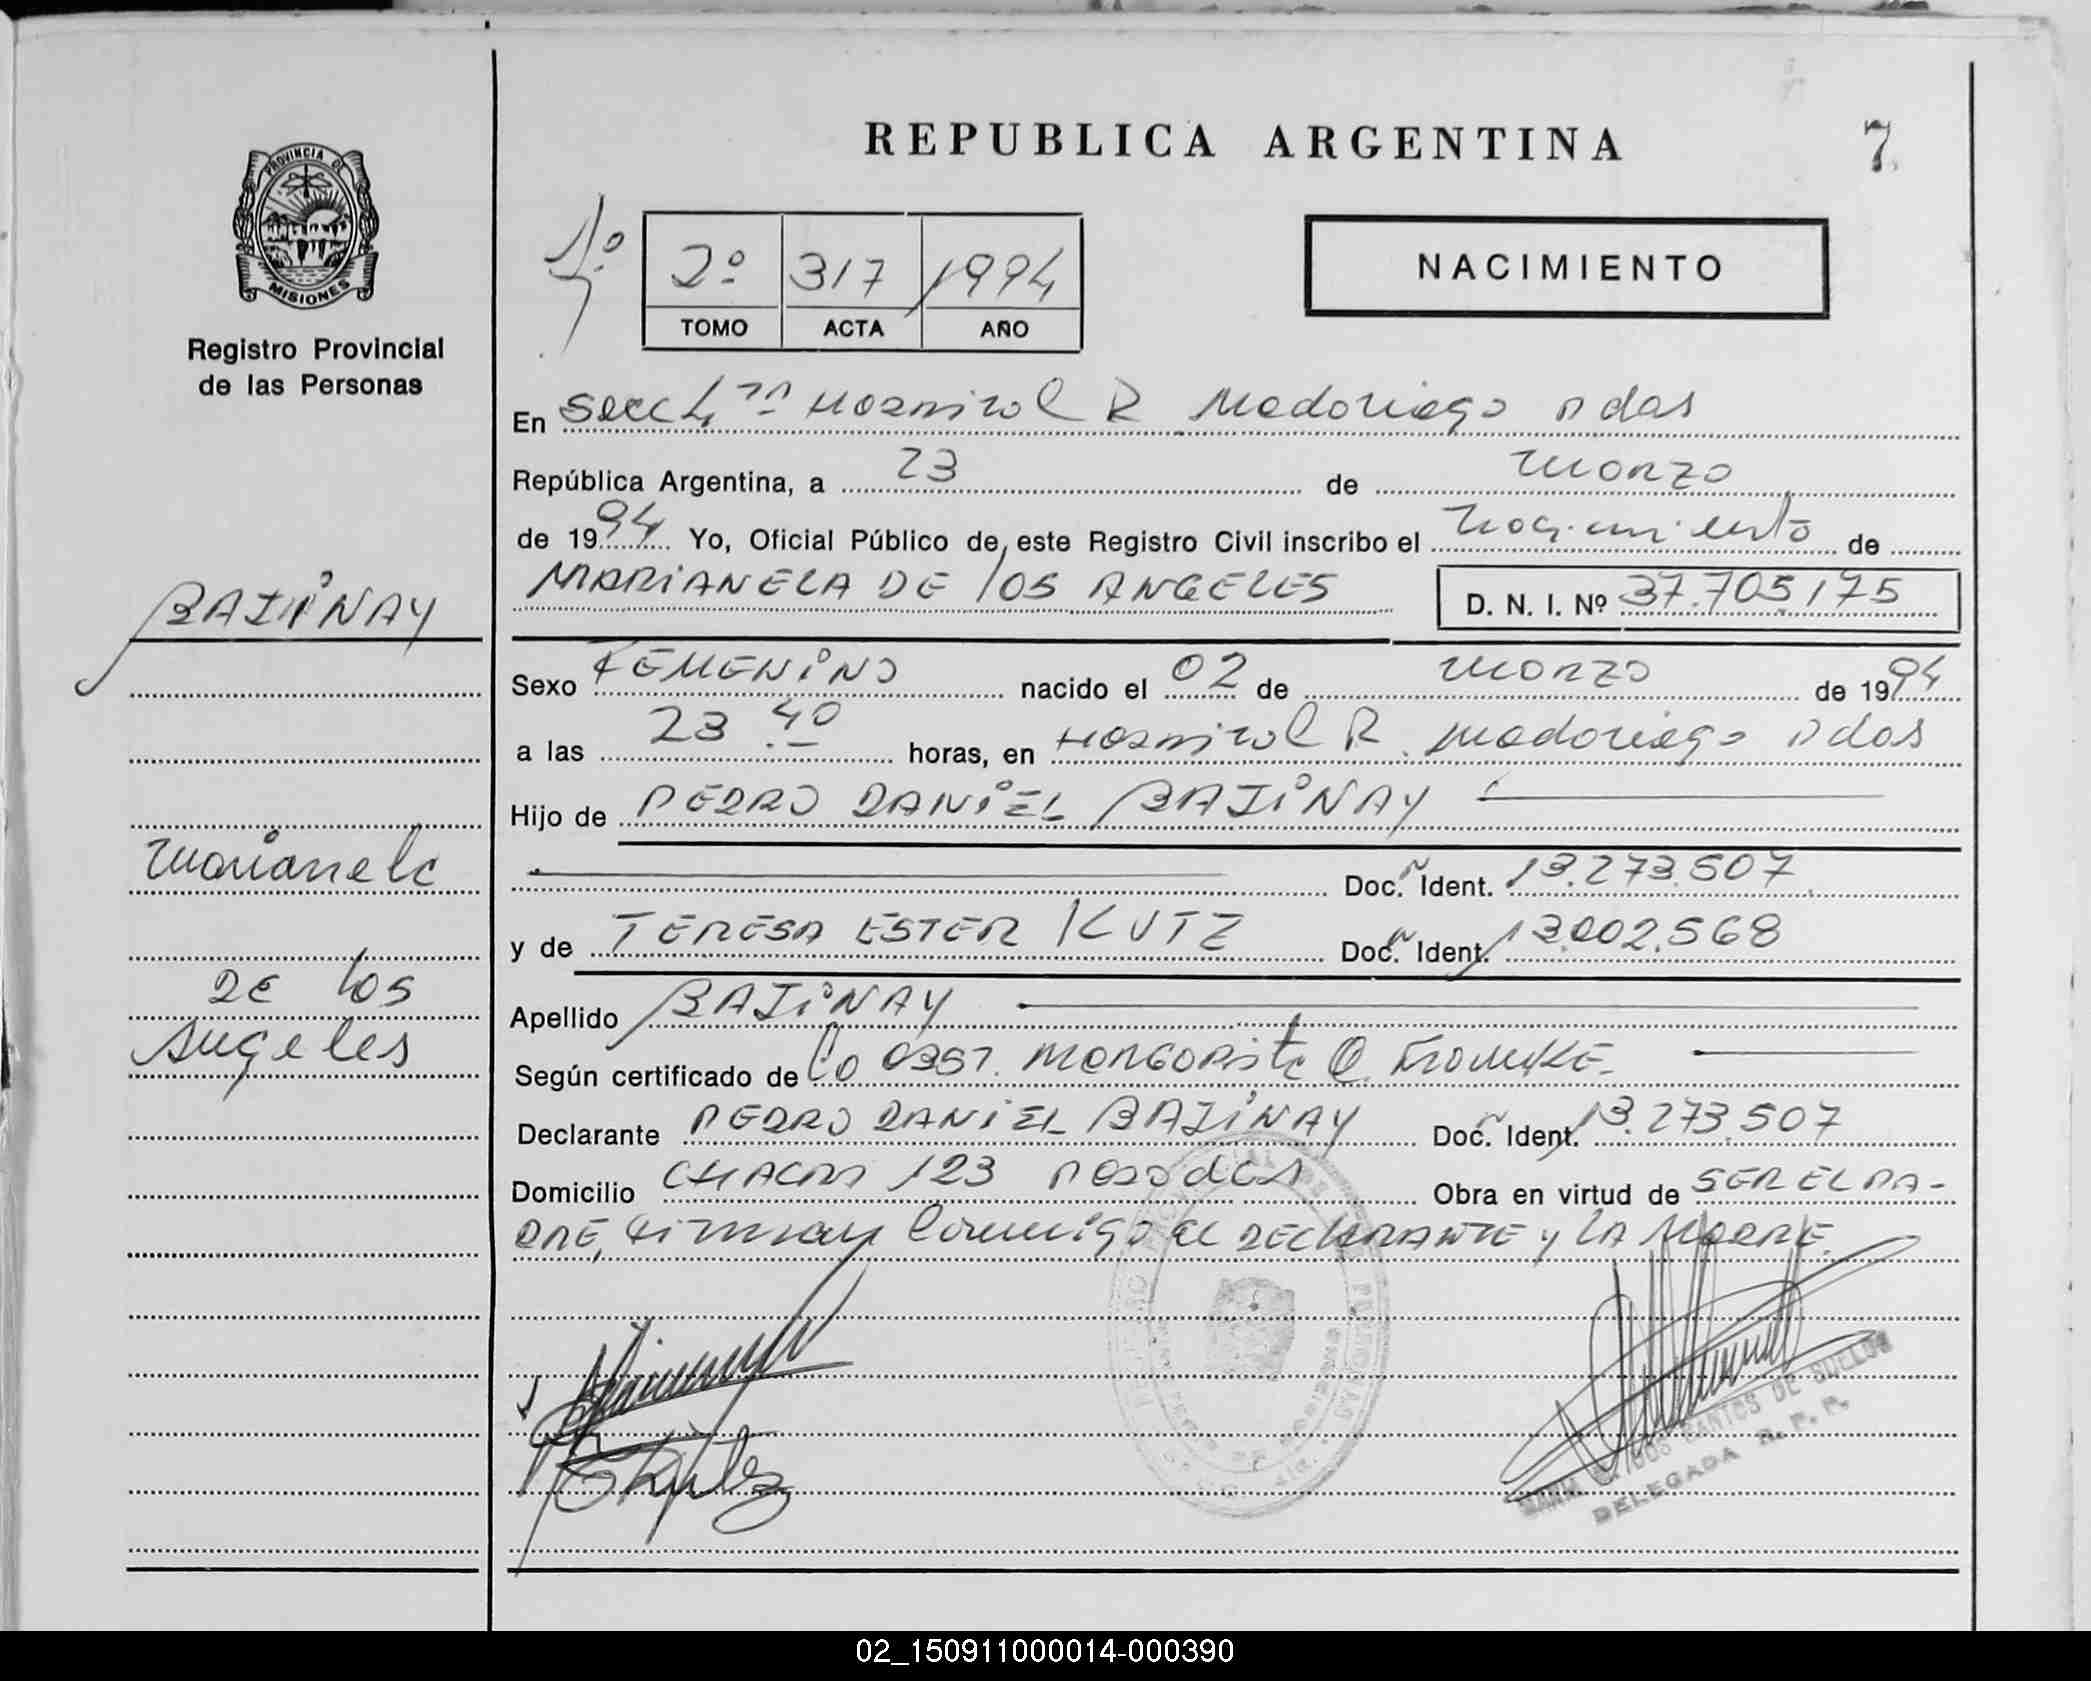 REPUBLICA ARGENTINA
7
PROVINCIA DE
MISIONES
Registro Provincial
de las Personas
2º 317 1994
TOMO ACTA AÑO
NACIMIENTO
En Secc 4 Hospital R Madariaga Pdas
República Argentina, a 23 de marzo
de 1994 Yo, Oficial Público de este Registro Civil inscribo el nacimiento de
MARIANELA DE LOS ANGELES D. N. I. Nº 37.705.175
BAJINAY
Sexo FEMENINO nacido el 02 de marzo de 1994
a las 23.40 horas, en Hospital R. Madariaga Pdas
Hijo de PEDRO DANIEL BAJINAY
Marianela
Doc. Ident. 13.273.507
y de TERESA ESTER KUTZ Doc. Ident. 13.002.568
de los
Angeles
Apellido BAJINAY
Según certificado de Co Obst. MARGARITA
Declarante PEDRO DANIEL BAJINAY Doc. Ident. 13.273.507
Domicilio 123 Posadas Obra en virtud de SER EL PA-
DRE, firman conmigo el DECLARANTE y LA MADRE.
DOS SANTOS DE
DELEGADA R. P. P.
02_150911000014-000390